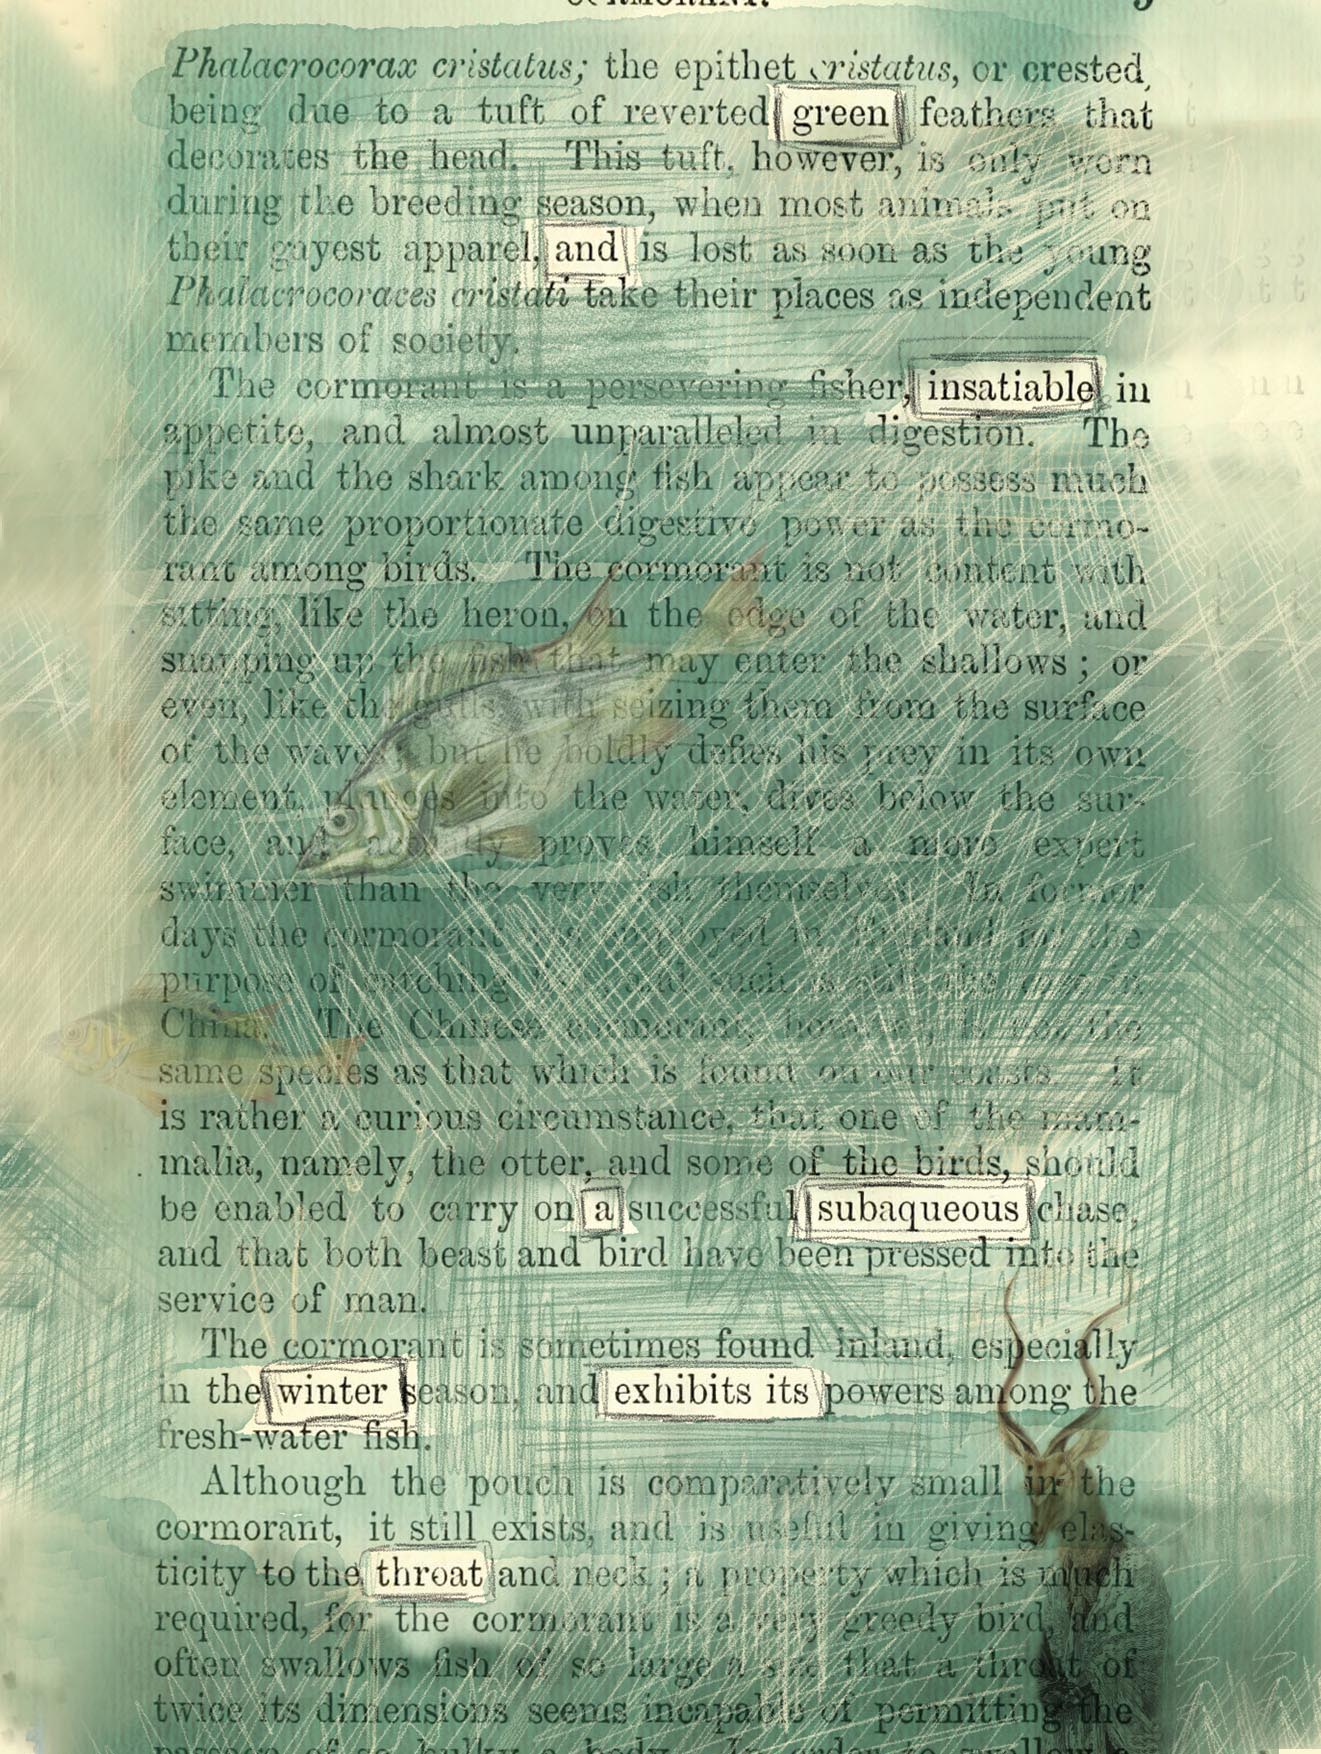 Phalacrocorax cristatus; the epithet cristatus, or crested,
being due to a tuft of reverted green feathers that
decorates the head. This tuft, however, is only worn
during the breeding season, when most animals put on
their gayest apparel, and is lost as soon as the young
Phalacrocoraces cristati take their places as independent
members of society.
The cormorant is a persevering fisher, insatiable in
appetite, and almost unparalleled in digestion. The
pike and the shark among fish appear to possess much
the same proportionate digestive power as the cormo-
rant among birds. The cormorant is not content with
sitting, like the heron, on the edge of the water, and
snapping up the fish that may enter the shallows; or
even, like the gulls, with seizing them from the surface
of the waves, but he boldly defies his prey in its own
element, plunges into the water, dives below the sur-
face, and actually proves himself a more expert
swimmer than the very fish themselves. In former
days the cormorant was employed in England for the
purpose of catching fish, and such is still the case in
China. The Chinese cormorant, however, is not the
same species as that which is found on our coasts. It
is rather a curious circumstance, that one of the mam-
malia, namely, the otter, and some of the birds, should
be enabled to carry on a successful subaqueous chase,
and that both beast and bird have been pressed into the
service of man.
The cormorant is sometimes found inland, especially
in the winter season, and exhibits its powers among the
fresh-water fish.
Although the pouch is comparatively small in the
cormorant, it still exists, and is useful in giving elas-
ticity to the throat and neck; a property which is much
required, for the cormorant is a very greedy bird, and
often swallows fish of so large a size that a throat of
twice its dimensions seems incapable of permitting the